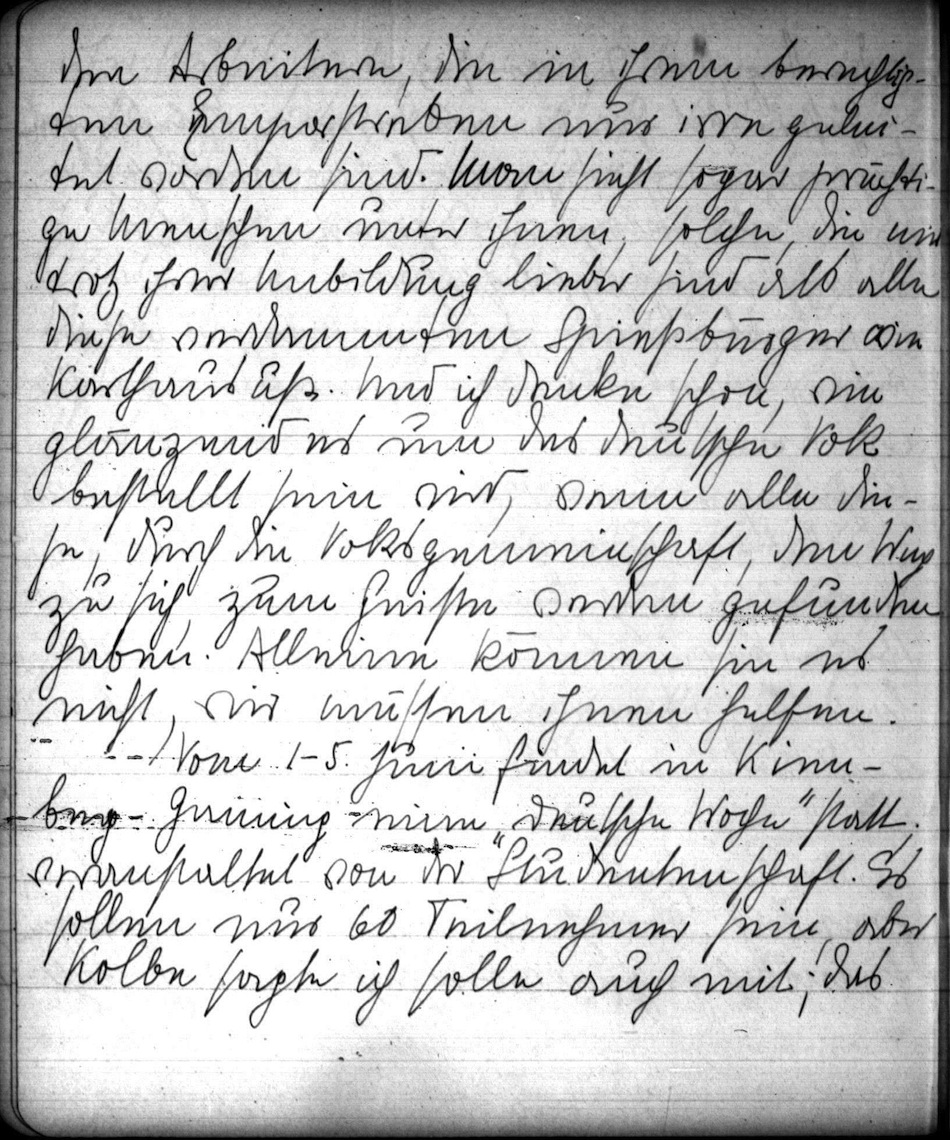 den Arbeitern, die in ihrem berechtig-
ten Emporstreben nur irre gelei-
tet worden sind. Man sieht sogar prächti-
ge Menschen unter ihnen, solche, die mir
trotz ihrer Unbildung lieber sind als alle
diese verdammten Spießbürger von
Karthaus usf. Und ich denke schon, wie
glänzend es um das deutsche Volk
bestellt sein wird, wenn alle die-
se, durch die Volksgemeinschaft, den Weg
zu sich, zum Geiste werden gefunden
haben. Alleine können sie es
nicht, wir müssen ihnen helfen.
Vom 1-5. Juni findet in
eine „Deutsche Woche" statt,
veranstaltet von der Studentenschaft. Es
sollen nur 60 Teilnehmer sein, aber
Kolbe sagte ich solle auch mit; das